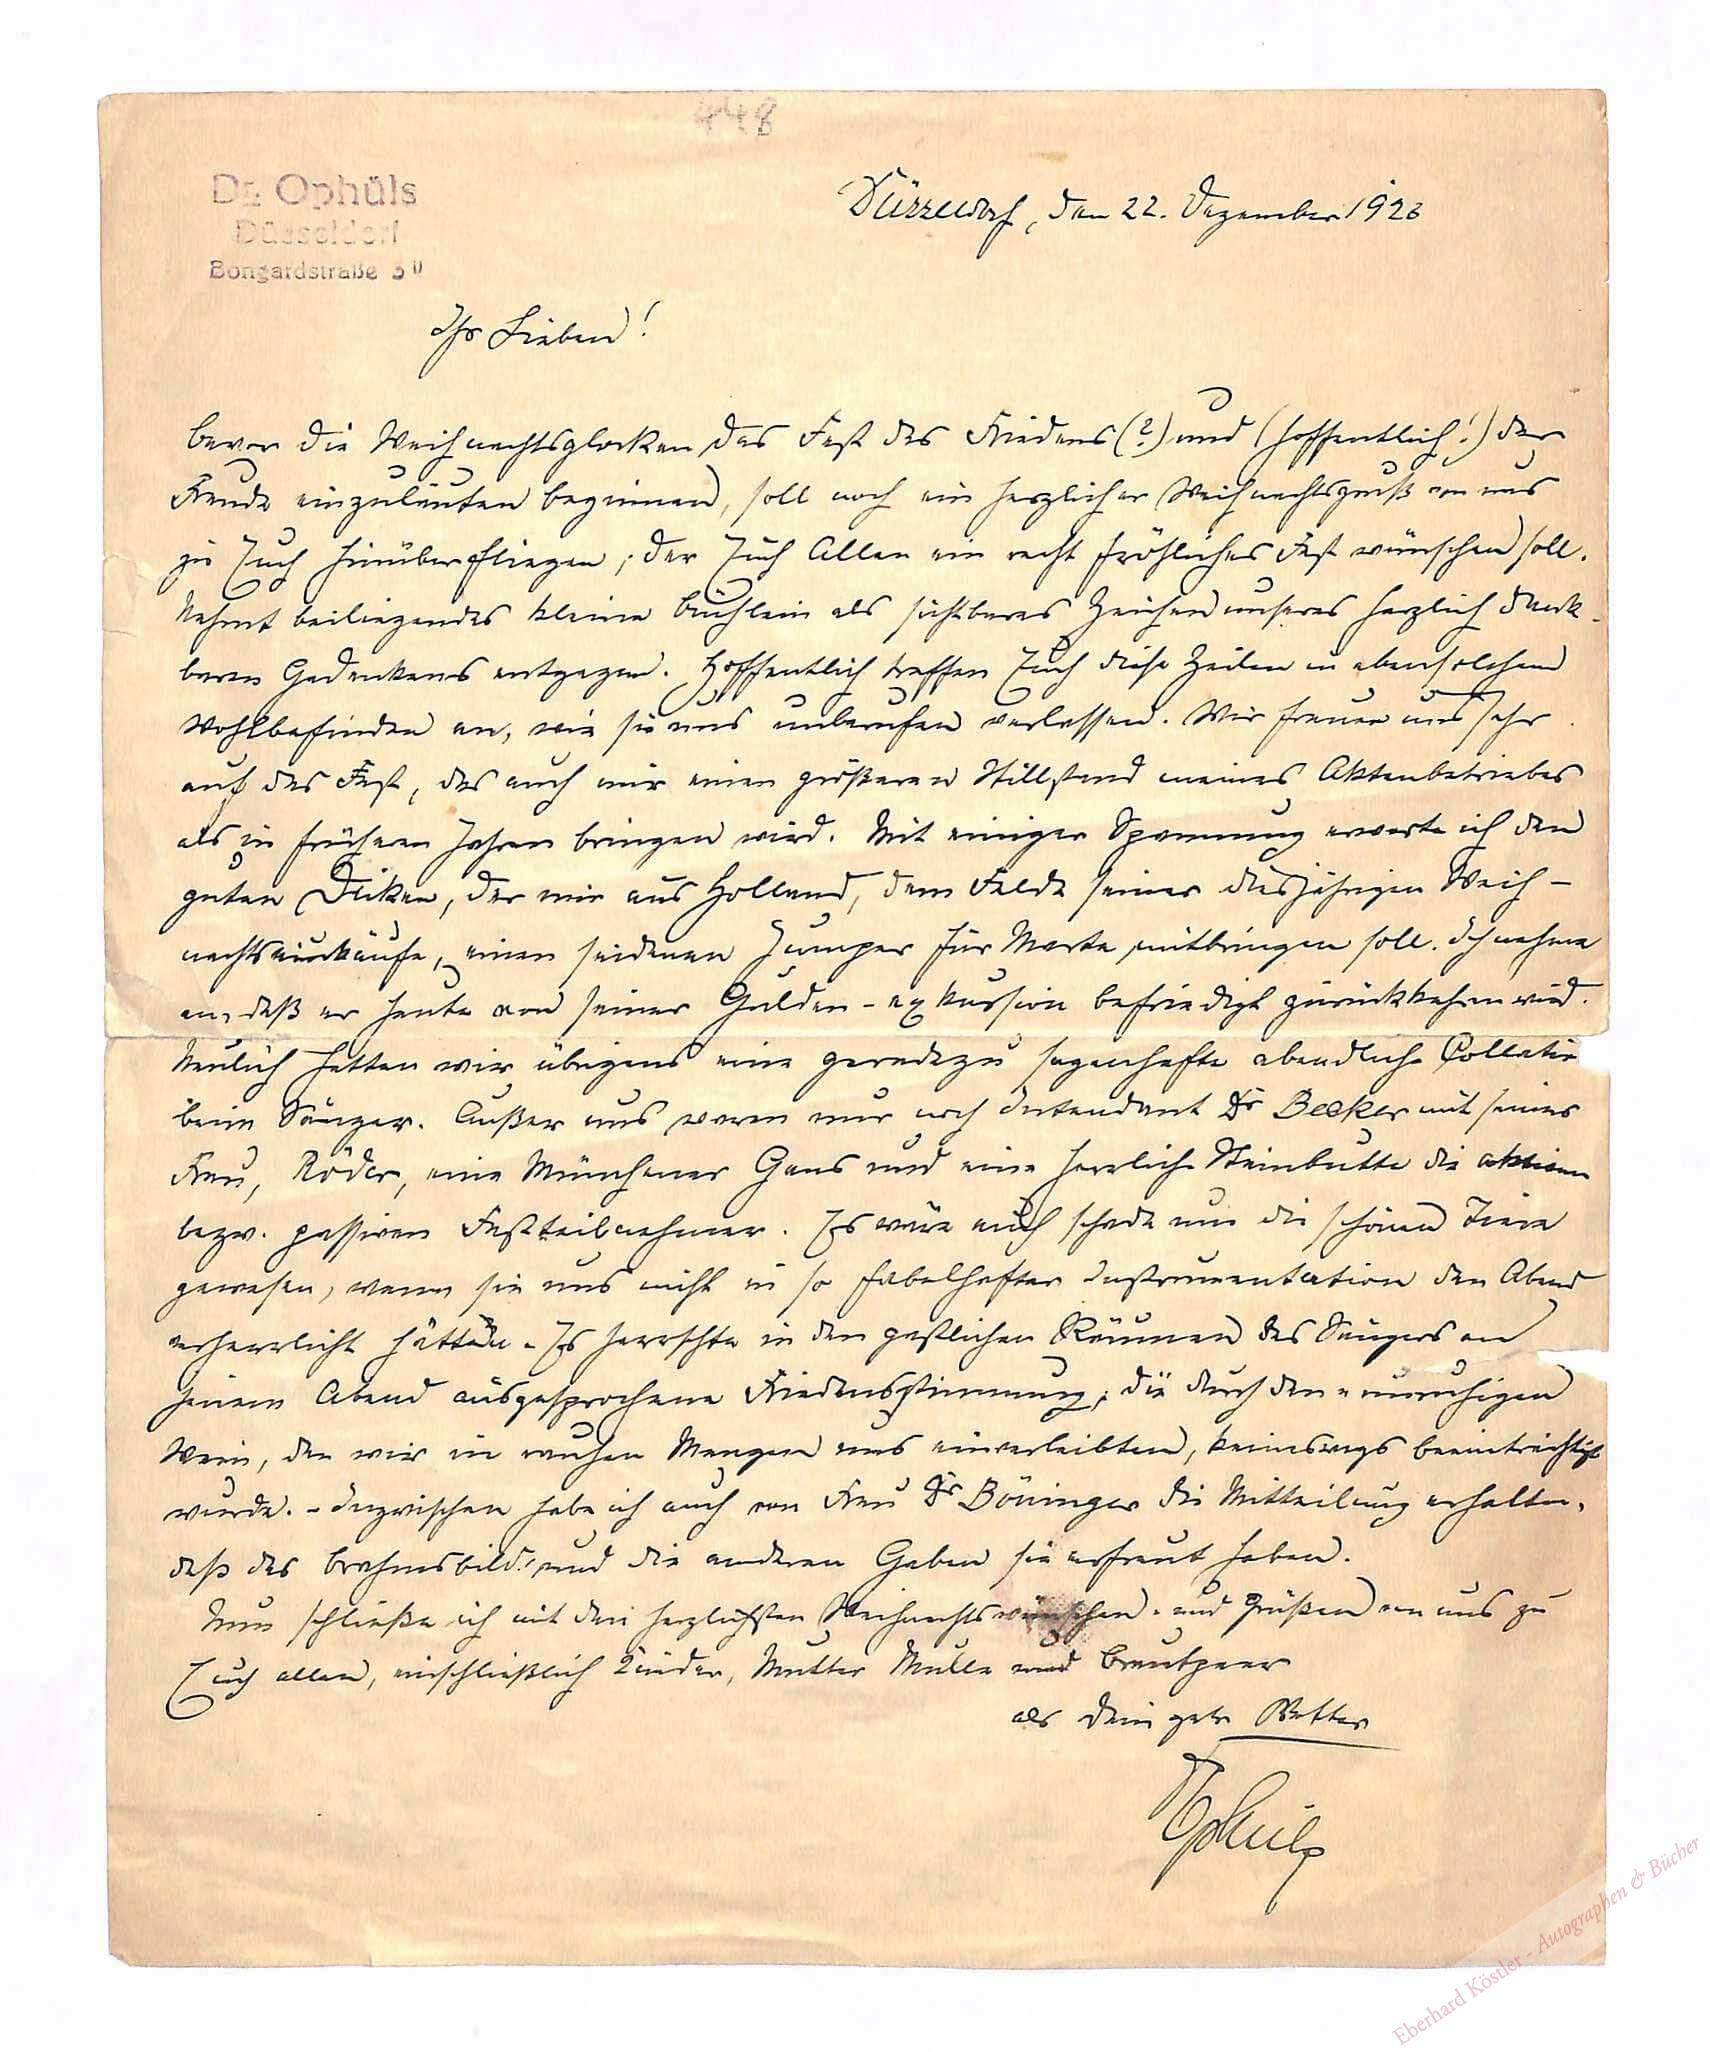 448
Dr. Ophüls
Düsseldorf
Bongardstraße 3 II
Düsseldorf, den 22. Dezember 1926
Ihr Lieben!
bevor die Weihnachtsglocken das Fest des Friedens (?) und (hoffentlich!) der
Freude einzuläuten beginnen, soll noch ein herzlicher Weihnachtsgruß von uns
zu Euch hinüberfliegen, der Euch Allen ein recht fröhliches Fest wünschen soll.
Nehmt beiliegendes kleine Büchlein als sichtbares Zeichen unseres herzlich dank-
baren Gedenkens entgegen. Hoffentlich treffen Euch diese Zeilen in ebensolchem
Wohlbefinden an, wie sie uns unberufen verlassen. Wir freuen uns sehr
auf das Fest, das auch mir einen größeren Stillstand meines Aktenbetriebes
als in früheren Jahren bringen wird. Mit einiger Spannung erwarte ich den
guten Dicken, der mir aus Holland, dem Felde seiner diesjährigen Weih-
nachtseinkäufe, einen seidenen Jumper für Marta mitbringen soll. Ich nehme
an, daß er heute von seiner Gulden-exkursion befriedigt zurückkehren wird.
Neulich hatten wir übrigens eine geradezu sagenhafte abendliche Collatio
beim Sänger. Außer uns waren nur noch Intendant Dr Becker mit seiner
Frau, Röder, eine Münchener Gans und eine herrliche Steinbutte die aktiven
bezw. passiven Festteilnehmer. Es wäre auch schade um die schönen Tiere
gewesen, wenn sie uns nicht in so fabelhafter Instrumentation den Abend
verherrlicht hätten. Es herrschte in den gastlichen Räumen des Sängers an
jenem Abend ausgesprochene Friedensstimmung, die durch den unruhigen
Wein, den wir in rauhen Mengen uns einverleibten, keineswegs beeinträchtigt
wurde. - Inzwischen habe ich auch von Frau Dr Böninger die Mitteilung erhalten,
daß das Brahmsbild und die anderen Gaben sie erfreut haben.
Nun schließe ich mit den herzlichsten Weihnachtswünschen und Grüßen von uns zu
Euch allen, einschließlich Kinder, Mutter Mulle und Brautpaar
als Dein getr Vetter
Ophüls
Eberhard Köstler - Autographen & Bücher